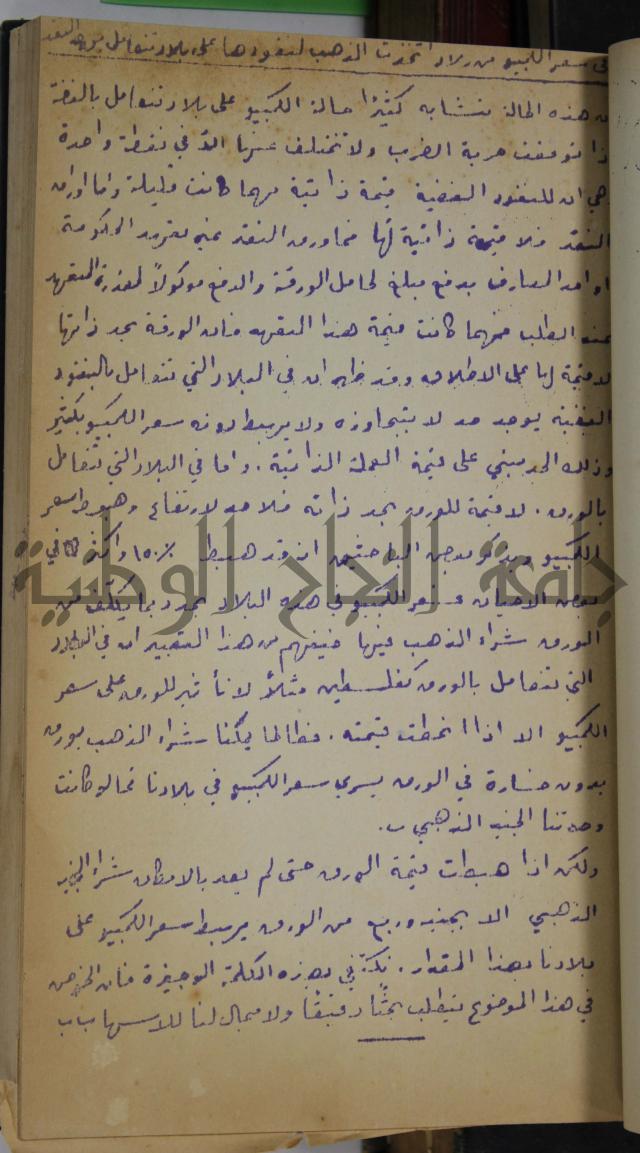 في سعر الكمبيو من بلاد اتخذت الذهب لنقودها على بلاد تتعامل بورق النقد
من هذه الحالة تتشابه كثيرًا حالة الكمبيو على بلاد تتعامل بالفضة
اذا توقفت حرية الضرب ولا تختلف عنها الا في نقطة واحدة
هي ان للنقود الفضية قيمة ذاتية مهما كانت قليلة واما اوراق
النقد فلا قيمة ذاتية لها فما ورق النقد غير تعهد الحكومة
او احد المصارف بدفع مبلغ لحامل الورقة والدفع موكولاً لمقدرة المتعهد
عند الطلب فمهما كانت قيمة هذا التعهد فان الورقة بحد ذاتها
لا قيمة لها على الاطلاق وقد ظهر ان في البلاد التي تتعامل بالنقود
الفضية يوجد حد لا يتجاوزه ولا يهبط دونه سعر الكمبيو بكثير
وذلك الحد مبني على قيمة العملة الذاتية . واما في البلاد التي تتعامل
بالورق . لا قيمة للورق بحد ذاته فلا حد لارتفاع وهبوط سعر
الكمبيو ويذكر بعض الباحثين انه قد هبط ١٥٠٪ واكثر في
بعض الاحيان وسعر الكمبيو في هذه البلاد محدد بما يكلف من
الورق شراء الذهب فيها فيفهم من هذا التعبير ان في البلاد
التي تتعامل بالورق كفلسطين مثلاً لا تأثير للورق على سعر
الكمبيو الا اذا انحطت قيمته . فطالما يمكننا شراء الذهب بورق
بدون خسارة في الورق يسري سعر الكمبيو في بلادنا كما لو كانت
وحدتنا الجنيه الذهبي .
ولكن اذا هبطت قيمة الورق حتى لم يعد بالامكان شراء الجنيه
الذهبي الا بجنيه وربع من الورق يهبط سعر الكمبيو على
بلادنا بهذا المقدار . نكتفي بهذه الكلمة الوجيزة فان الخوض
في هذا الموضوع يتطلب بحثًا دقيقًا ولا مجال لنا للاسهاب
جامعة النجاح الوطنية